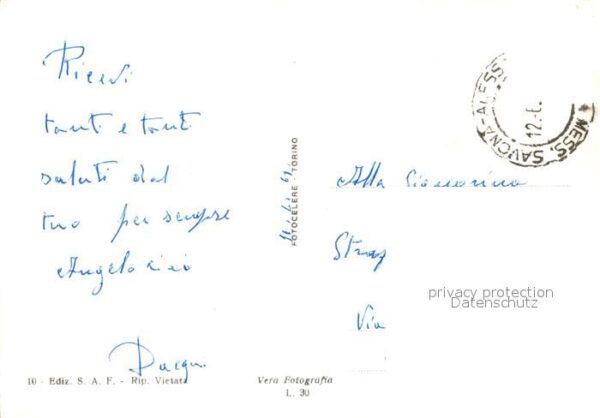 Ricevi
tanti e tanti
saluti dal
tuo per sempre
Angelo ciao
FOTOCELERE - TORINO
MESS. SAVONA-ALESS
12.6.
Alla Signorina
Via
privacy protection
Datenschutz
16 - Ediz. S. A. F. - Rip. Vietata
Vera Fotografia
L. 30